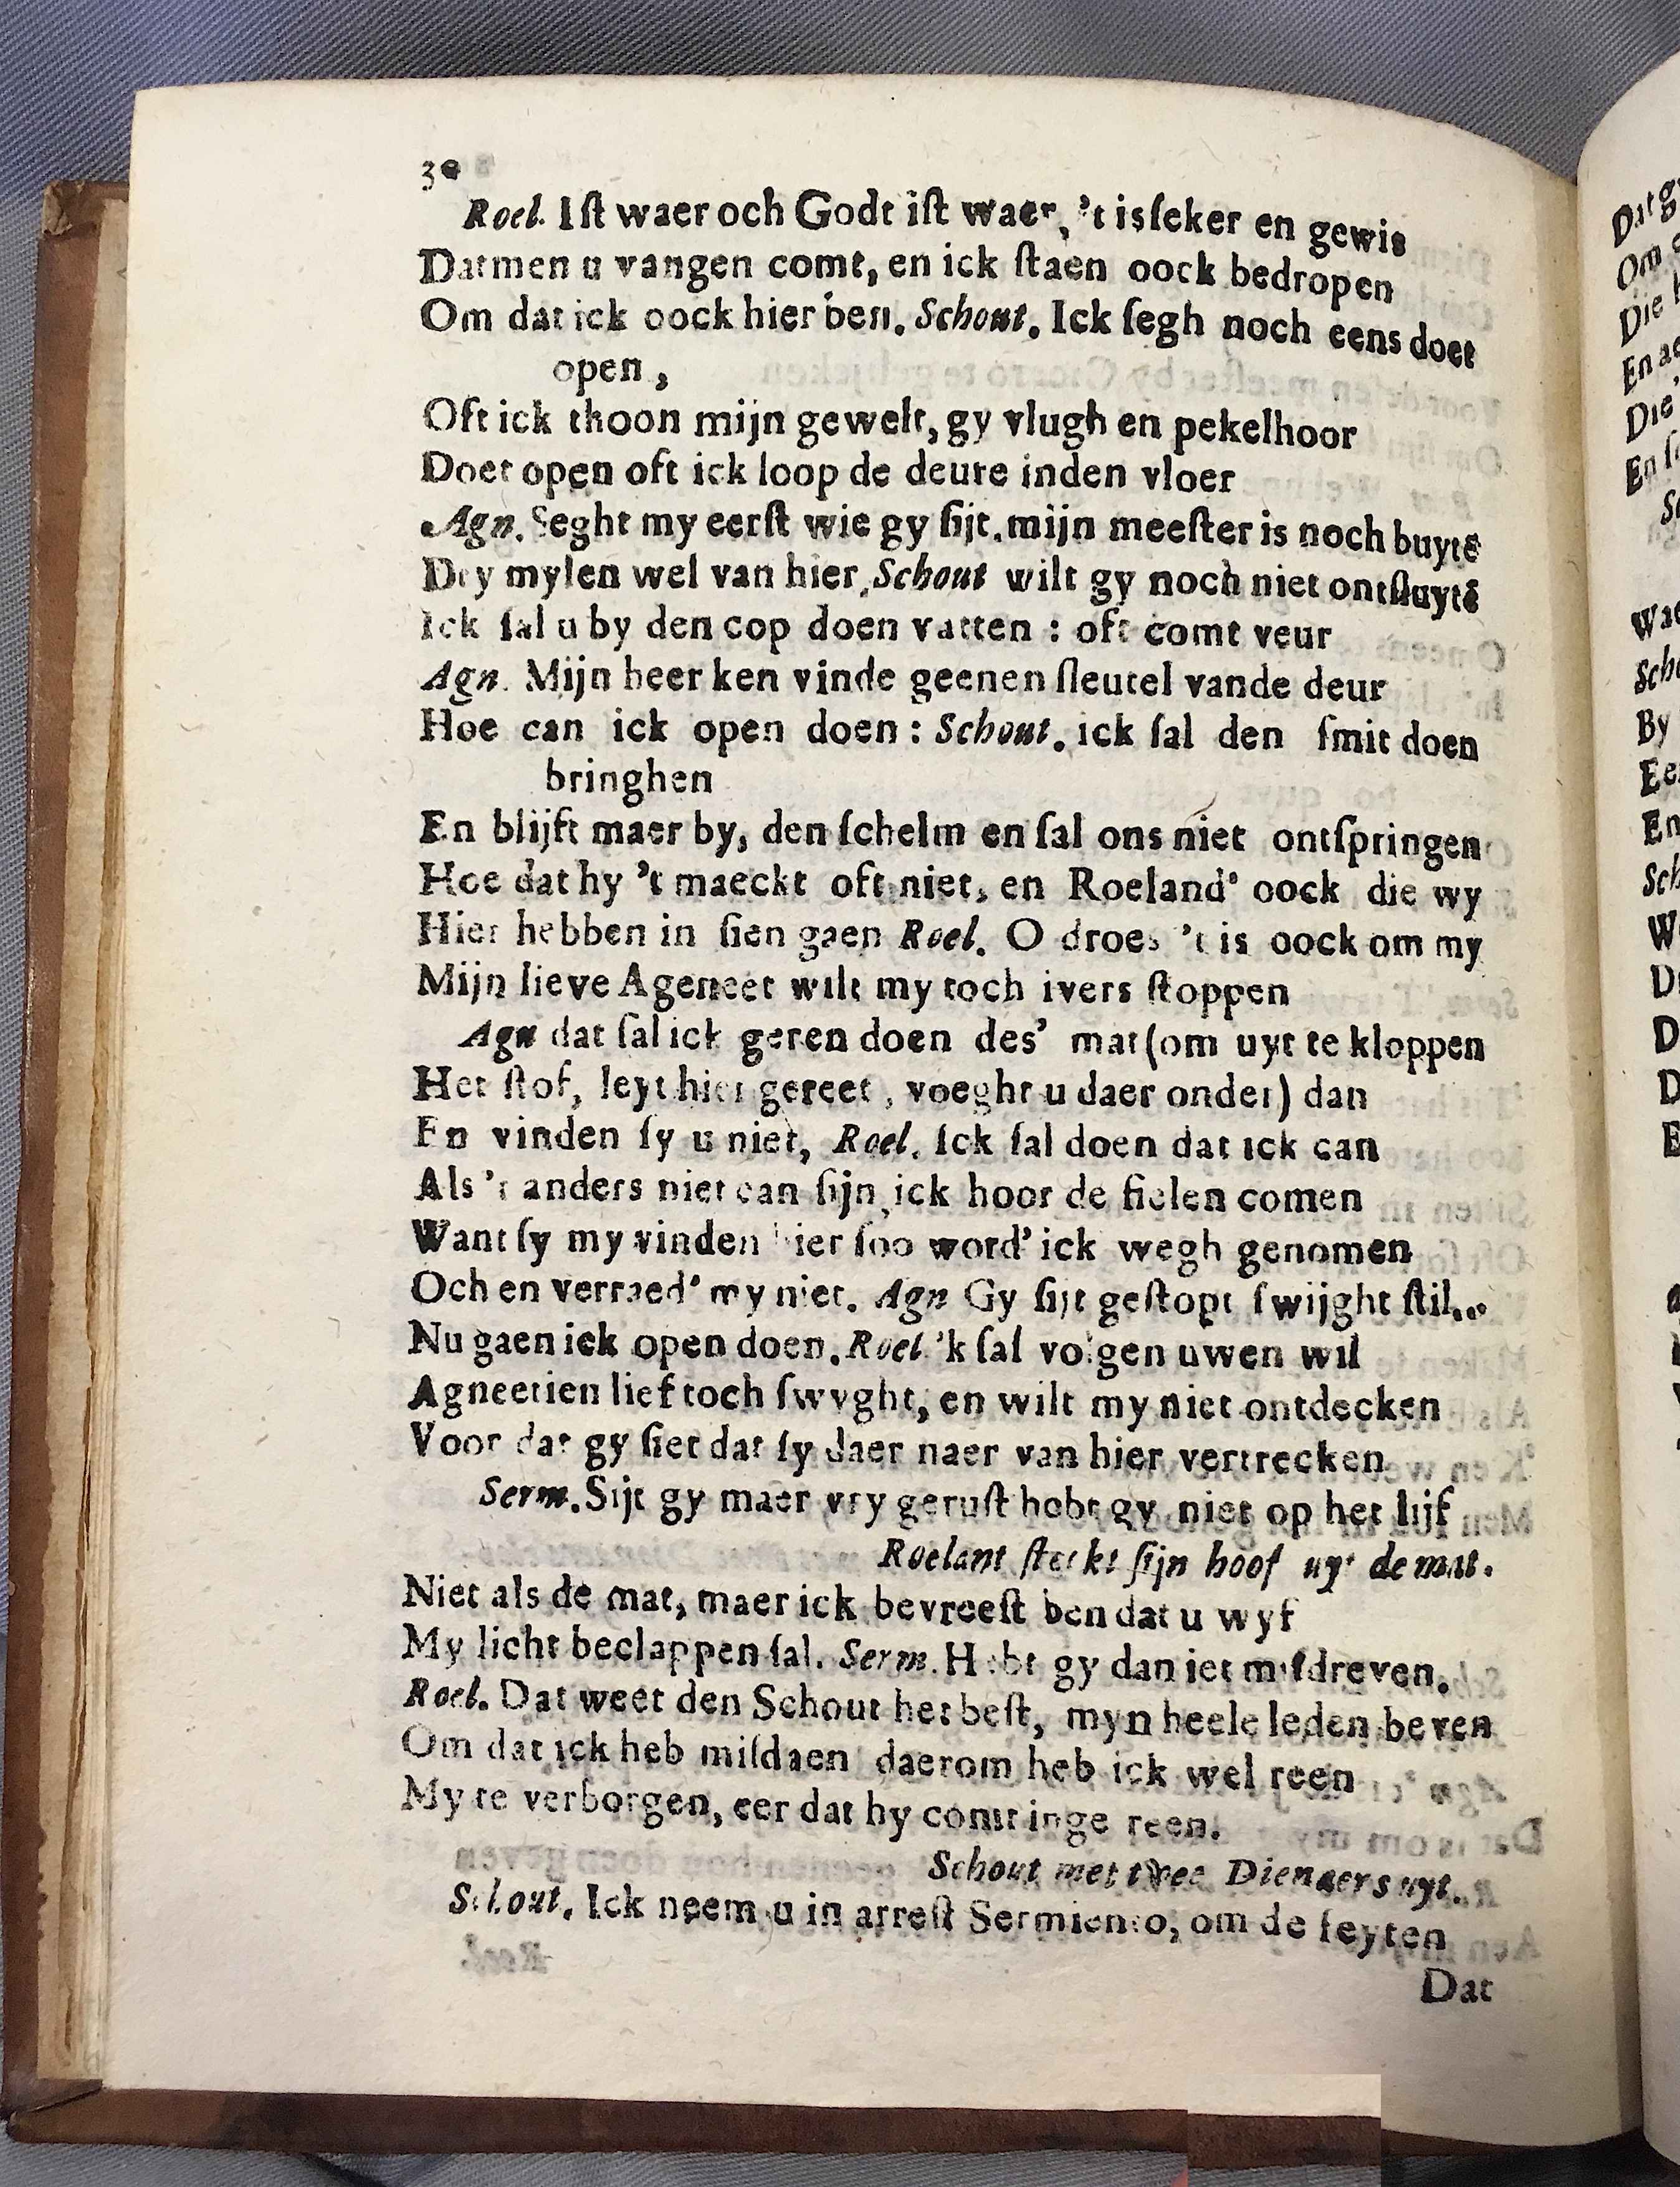 30
Roel. Iſt waer och Godt iſt waer, 't is ſeker en gewis
Datmen u vangen comt, en ick ſtaen oock bedropen
Om dat ick oock hier ben. Schout. Ick ſegh noch eens doet
open,
Oft ick thoon mijn gewelt, gy vlugh en pekelhoor
Doet open oft ick loop de deure inden vloer
Agn. Seght my eerſt wie gy ſijt. mijn meeſter is noch buytē
Dry mylen wel van hier, Schout wilt gy noch niet ontſluytē
Ick ſal u by den cop doen vatten : oft comt veur
Agn. Mijn heer ken vinde geenen ſleutel vande deur
Hoe can ick open doen : Schout. ick ſal den ſmit doen
bringhen
En blijft maer by, den ſchelm en ſal ons niet ontſpringen
Hoe dat hy 't maeckt oft niet, en Roeland' oock die wy
Hier hebben in ſien gaen Roel. O droes 't is oock om my
Mijn lieve Ageneet wilt my toch ivers ſtoppen
Agn dat ſal ick geren doen des' mat (om uyt te kloppen
Het ſtof, leyt hier gereet, voeght u daer onder) dan
En vinden ſy u niet, Roel. Ick ſal doen dat ick can
Als 't anders niet can ſijn, ick hoor de fielen comen
Want ſy my vinden hier ſoo word' ick wegh genomen
Och en verraed' my niet. Agn Gy ſijt geſtopt ſwijght ſtil..
Nu gaen ick open doen. Roel. 'k ſal volgen uwen wil
Agneetien lief toch ſwyght, en wilt my niet ontdecken
Voor dat gy ſiet dat ſy daer naer van hier vertrecken
Serm. Sijt gy maer vry geruſt hebt gy niet op het lijf
Roelant ſteckt ſijn hoof uyt de mat.
Niet als de mat, maer ick bevreeſt ben dat u wyf
My licht beclappen ſal. Serm. Hebt gy dan iet miſdreven.
Roel. Dat weet den Schout het beſt, myn heele leden beven
Om dat ick heb miſdaen daerom heb ick wel reen
My te verborgen, eer dat hy comt inge reen.
Schout met twee Dienaers uyt.
Schout. Ick neem u in arreſt Sermiento, om de feyten
Dat